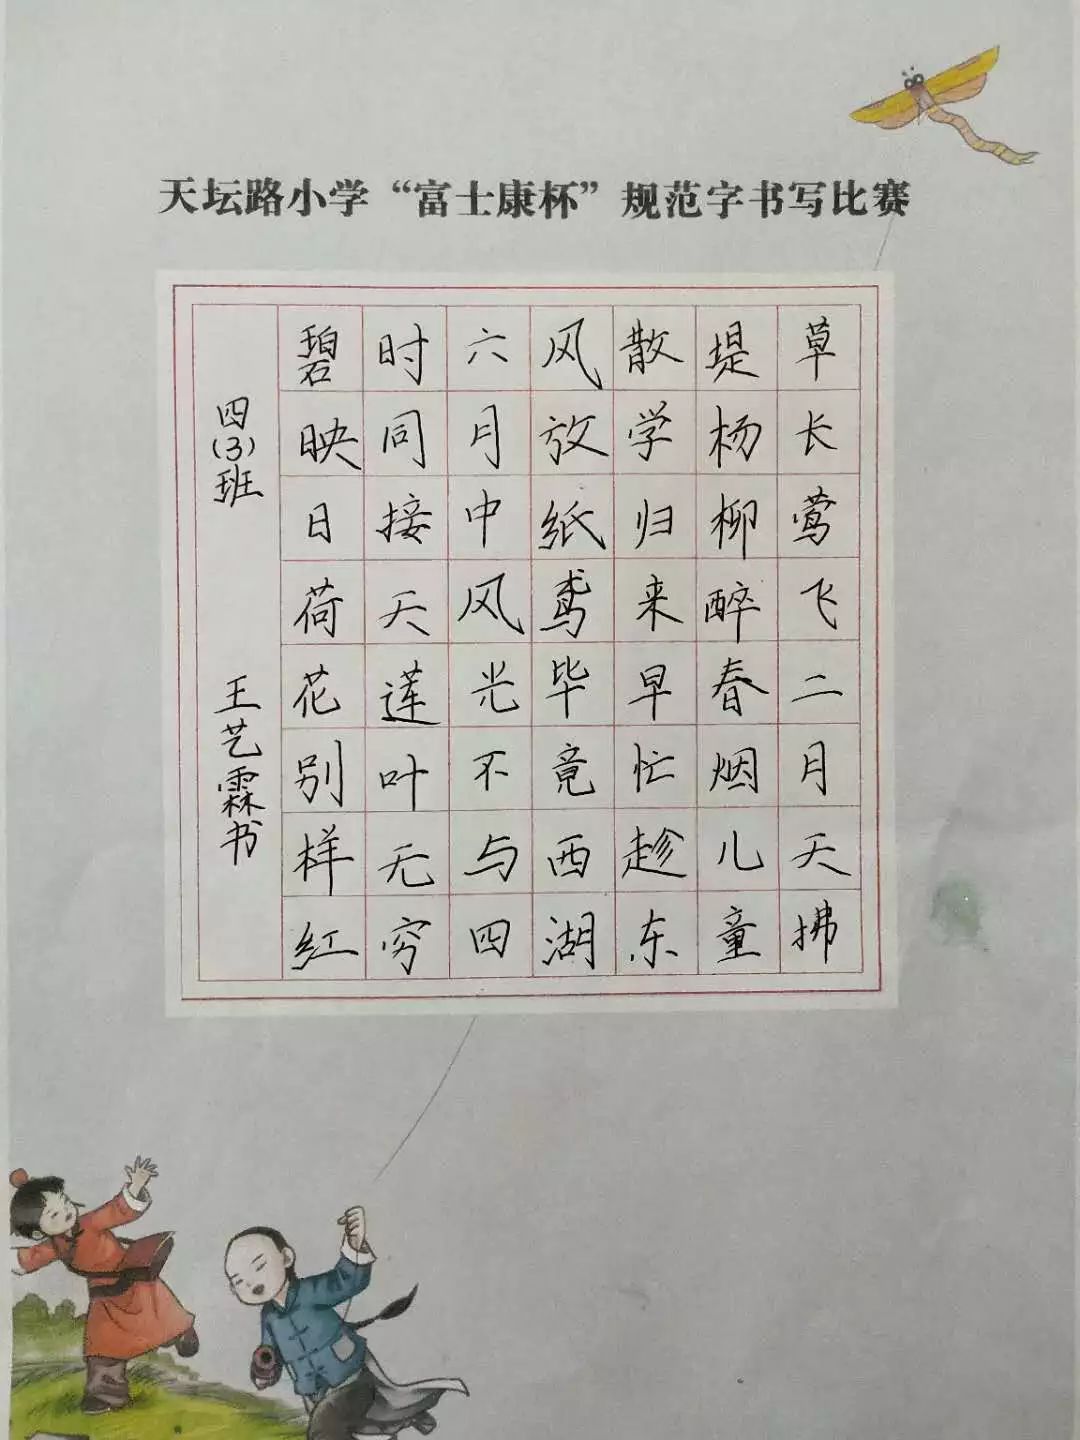 天坛路小学“富士康杯”规范字书写比赛
草长莺飞二月天拂
堤杨柳醉春烟儿童
散学归来早忙趁东
风放纸鸢毕竟西湖
六月中风光不与四
时同接天莲叶无穷
碧映日荷花别样红
四(3)班 王艺霖书